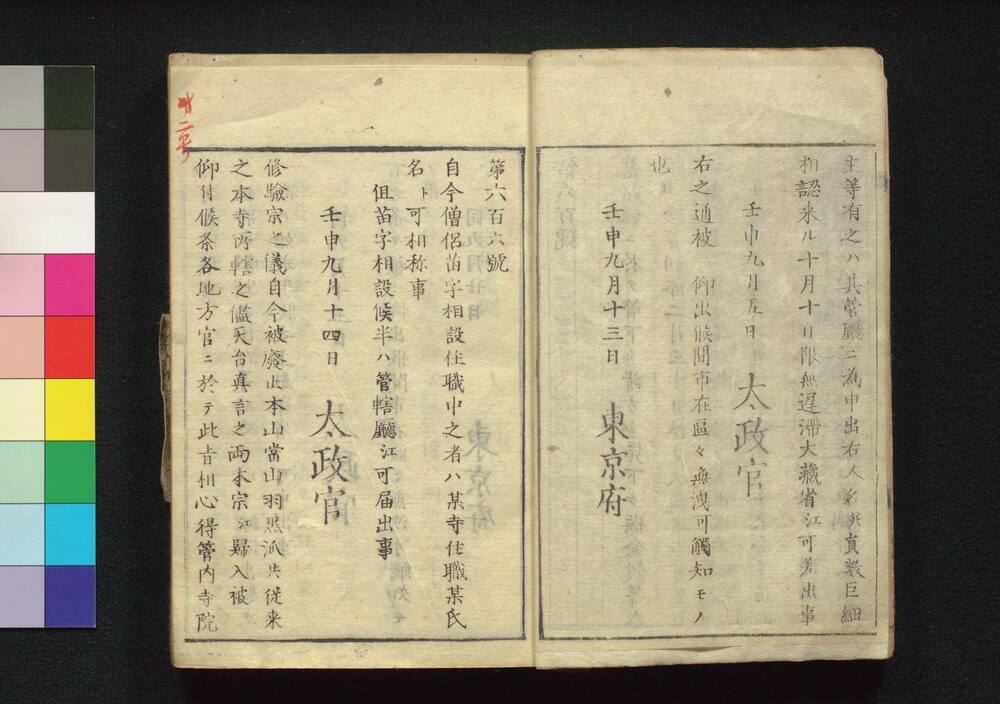 主等有之ハ其管廳ニ為申出右人名員數巨細
相認来ル十月十日限無遅滞大藏省江可差出事
壬申九月五日 太政官
右之通被 仰出候間市在區々無洩可觸知モノ
也
壬申九月十三日 東京府
第六百六號
自今僧侶苗字相設住職中之者ハ某寺住職某氏
名ト可相称事
但苗字相設候半ハ管轄廳江可届出事
壬申九月十四日 太政官
修驗宗之儀自今被廢止本山當山羽黒派共従来
之本寺所轄之儘天台真言之両本宗江歸入被
仰付候条各地方官ニ於テ此旨相心得管内寺院